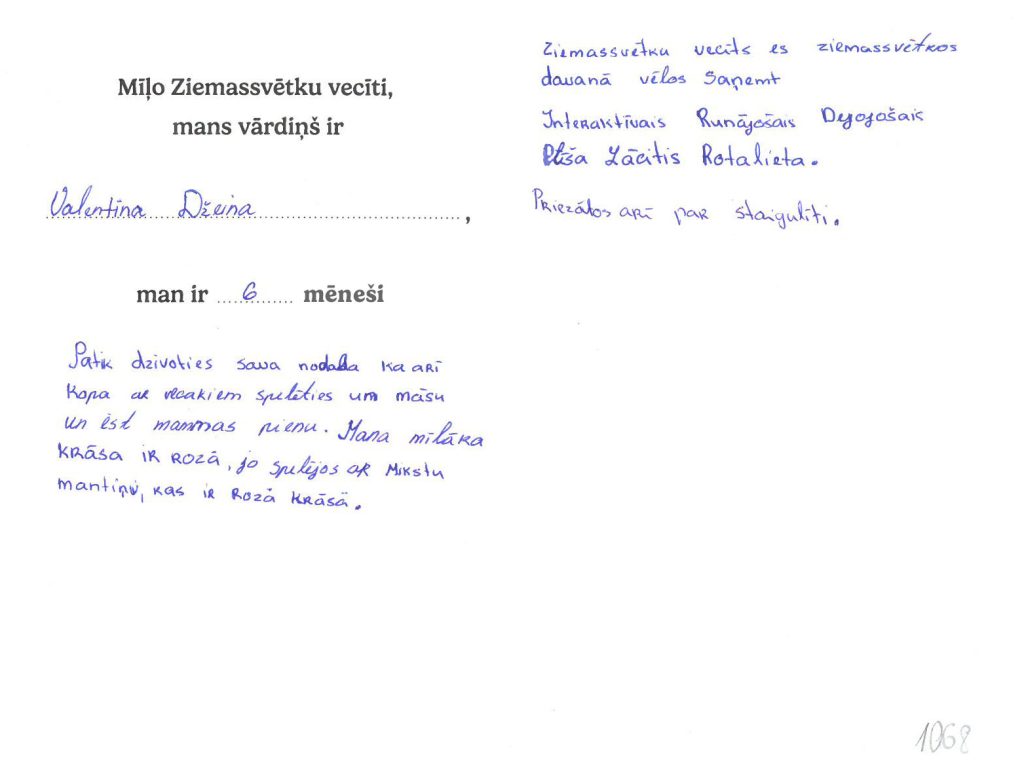 Mīļo Ziemassvētku vecīti,
mans vārdiņš ir
Valentīna Džeina,
man ir 6 mēneši
Patīk dzīvoties sava nodaļa kā arī
kopa ar vecakiem spēlēties um māsu
un ēst mammas pienu. Mana mīļāka
krāsa ir rozā, jo spēlējos ar mikstu
mantiņu, kas ir rozā krāsā.
Ziemassvētku vecīts es ziemassvētkos
davanā vēlos saņemt
Interaktīvais Runājošais Dejojošaik
Plīša Lācītis Rotaļlieta.
Priezātos arī par staigulīti.
1068